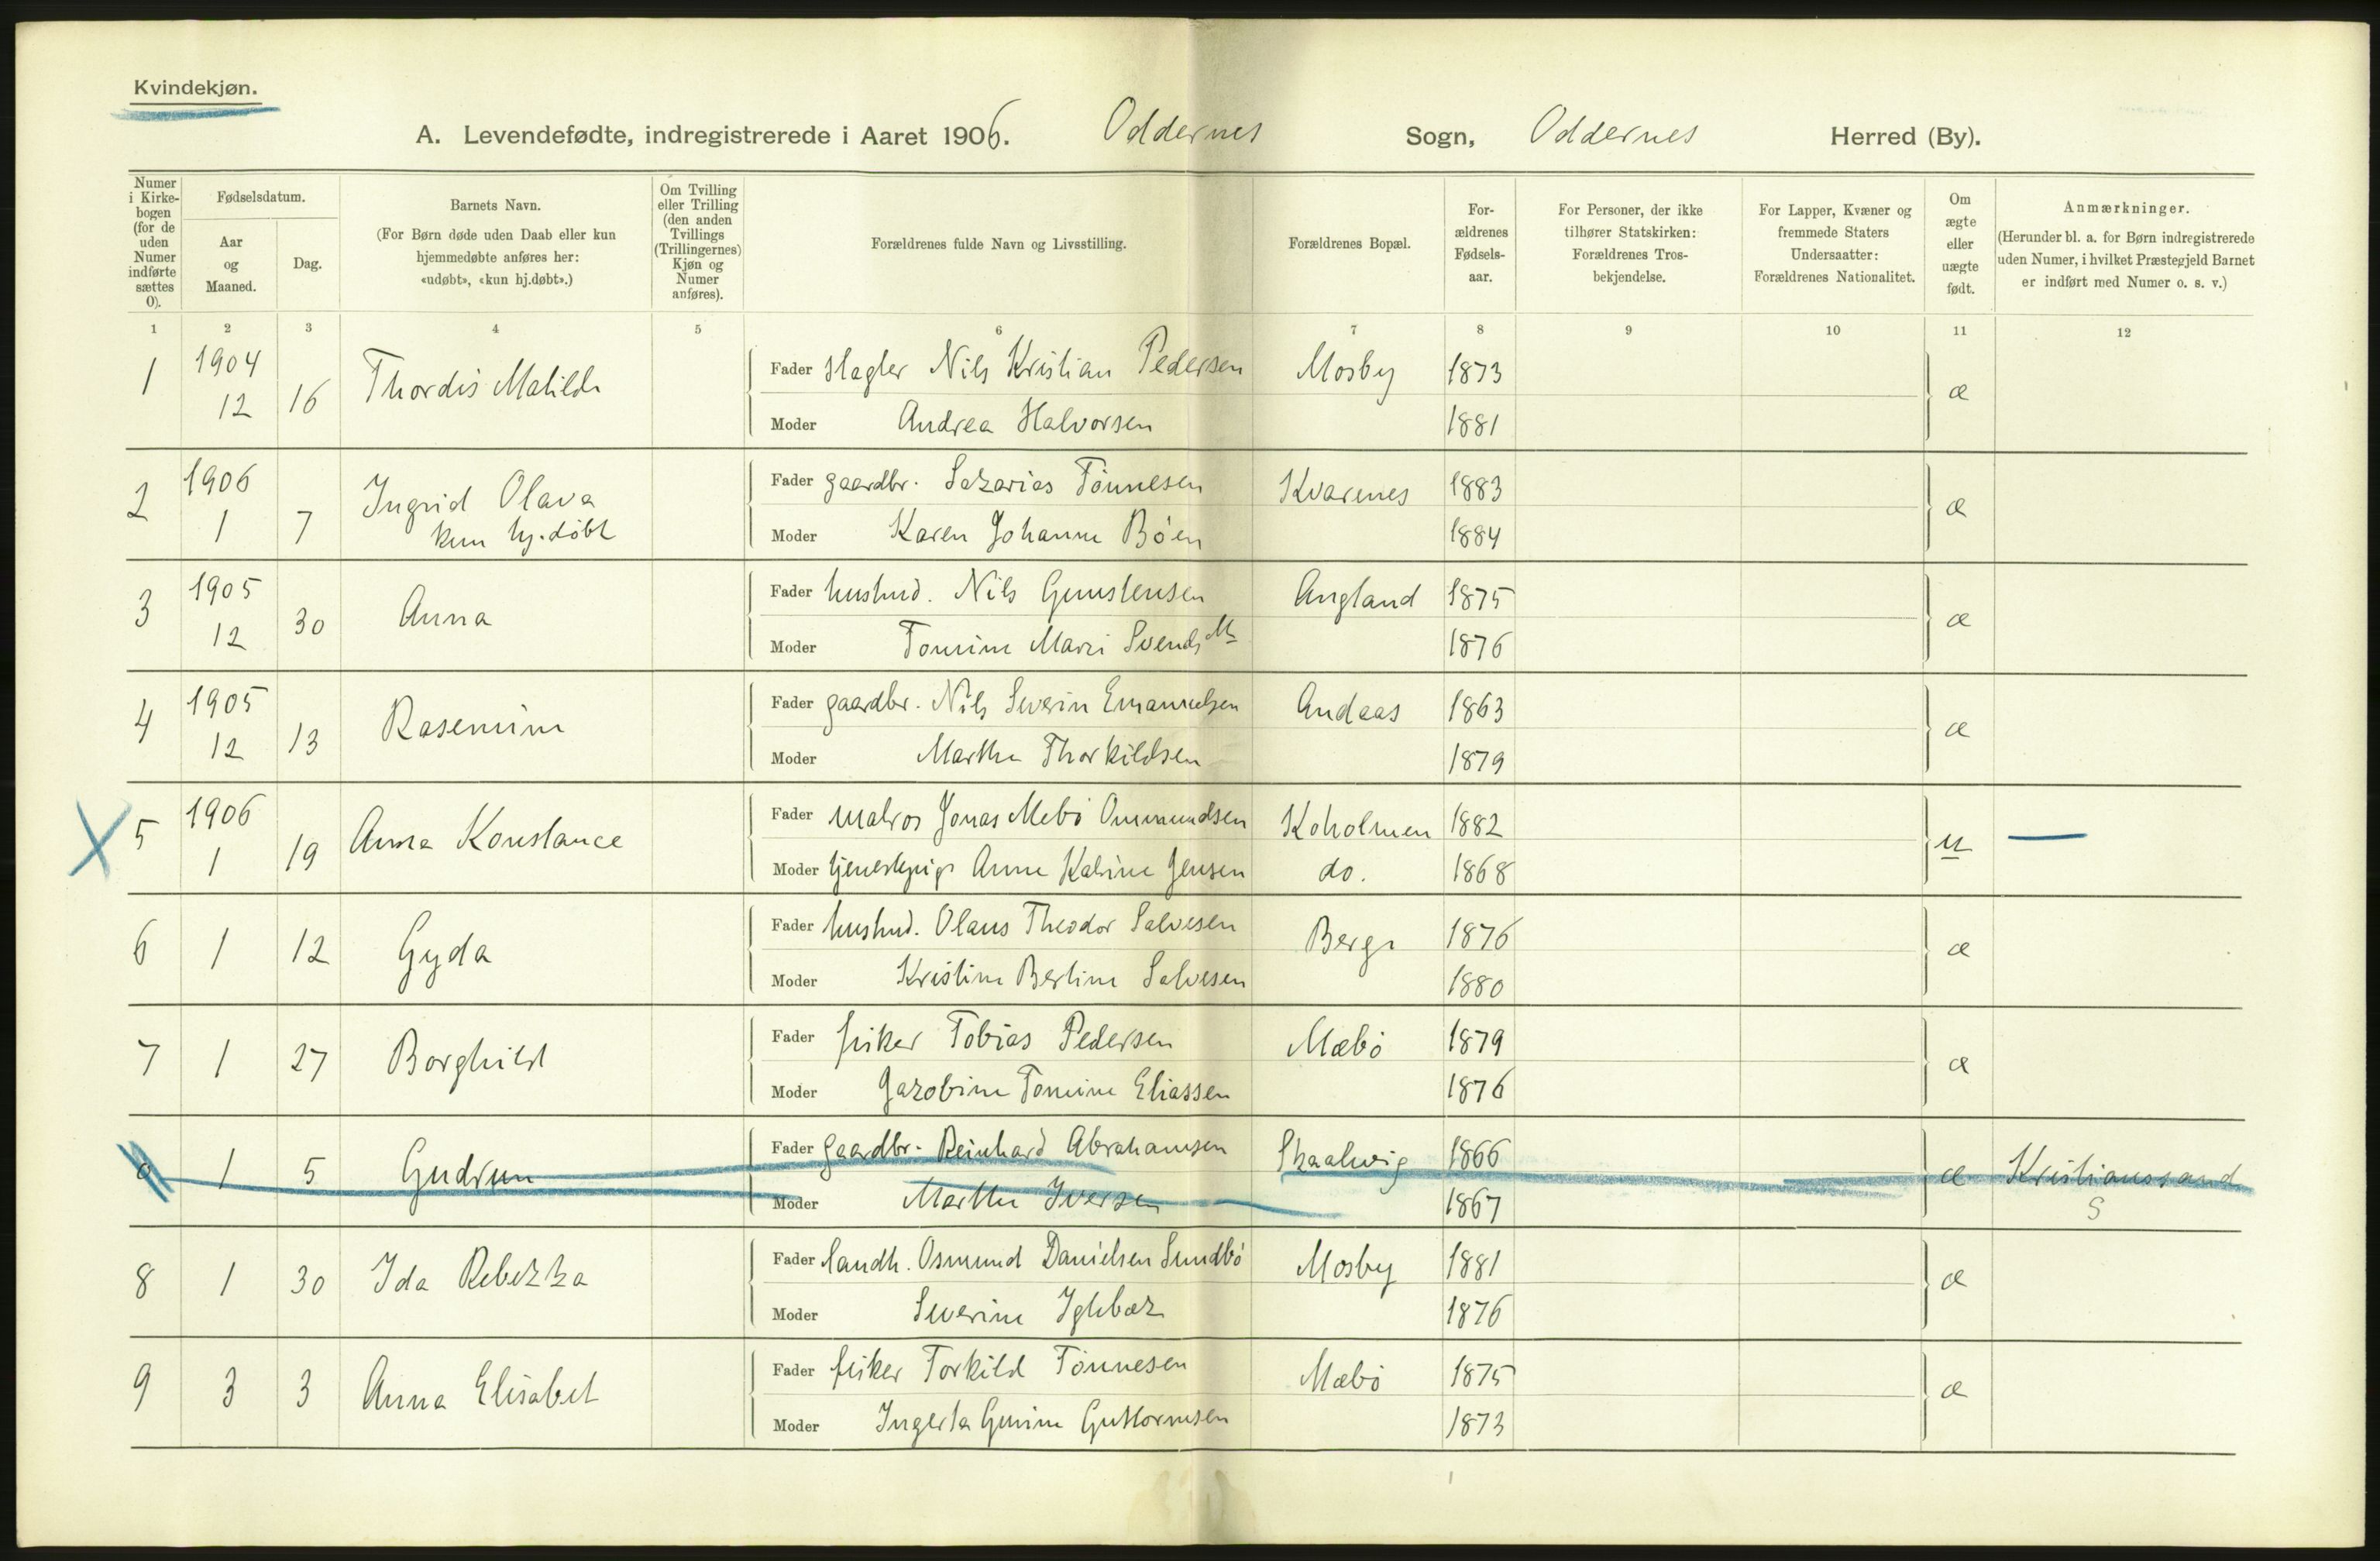 Kvindekjøn.
A. Levendefødte, indregistrerede i Aaret 1906. Oddernes Sogn, Oddernes Herred (By).
Numer i Kirkebogen (for de uden Numer indførte sættes 0).
Fødselsdatum.
Aar og Maaned.
Dag.
Barnets Navn.
(For Børn døde uden Daab eller kun hjemmedøbte anføres her: «udøbt», «kun hj.døbt».)
Om Tvilling eller Trilling (den anden Tvillings (Trillingernes) Kjøn og Numer anføres).
Forældrenes fulde Navn og Livsstilling.
Forældrenes Bopæl.
Forældrenes Fødselsaar.
For Personer, der ikke tilhører Statskirken: Forældrenes Trosbekjendelse.
For Lapper, Kvæner og fremmede Staters Undersaatter: Forældrenes Nationalitet.
Om ægte eller uægte født.
Anmærkninger.
(Herunder bl. a. for Børn indregistrerede uden Numer, i hvilket Præstegjeld Barnet er indført med Numer o. s. v.)
1 2 3 4 5 6 7 8 9 10 11 12
1 1904 12 16 Thordis Matilde Fader Slagter Nils Kristian Pedersen Mosby 1873 æ
Moder Andrea Halvorsen 1881
2 1906 1 7 Ingrid Olava Fader gaardbr. Sakarias Tønnesen Kvarenes 1883 æ
kun hj.døbt Moder Karen Johanne Bøen 1884
3 1905 12 30 Anna Fader husmd. Nils Gunstensen Angland 1875 æ
Moder Tomine Marie 1876
4 1905 12 13 Rasemine Fader gaardbr. Nils Severin Emanuelsen Andaas 1863 æ
Moder Marthe Thorkildsen 1879
X 5 1906 1 19 Anna Konstance Fader Matros Jonas Mebø Ommundsen Koholmen 1882 u —
Moder tjenestepige Anne Katrine Jensen do. 1868
6 1 12 Gyda Fader husmd. Olaus Theodor Salvesen Berge 1876 æ
Moder Kristine Bertine Salvesen 1880
7 1 27 Borghild Fader fisker Tobias Pedersen Mæbø 1879 æ
Moder Jakobine Tomine Eliassen 1876
0 1 5 Gudrun Fader gaardbr. Reinhard Abrahamsen Skaalevig 1866 æ Kristianssand
Moder Marthe Iversen 1867 S
8 1 30 Ida Rebekka Fader landh. Osmund Danielsen Sundbø Mosby 1881 æ
Moder Severine Iglebæk 1876
9 3 3 Anna Elisabet Fader fisker Torkild Tønnesen Mæbø 1875 æ
Moder Guttormsen 1873